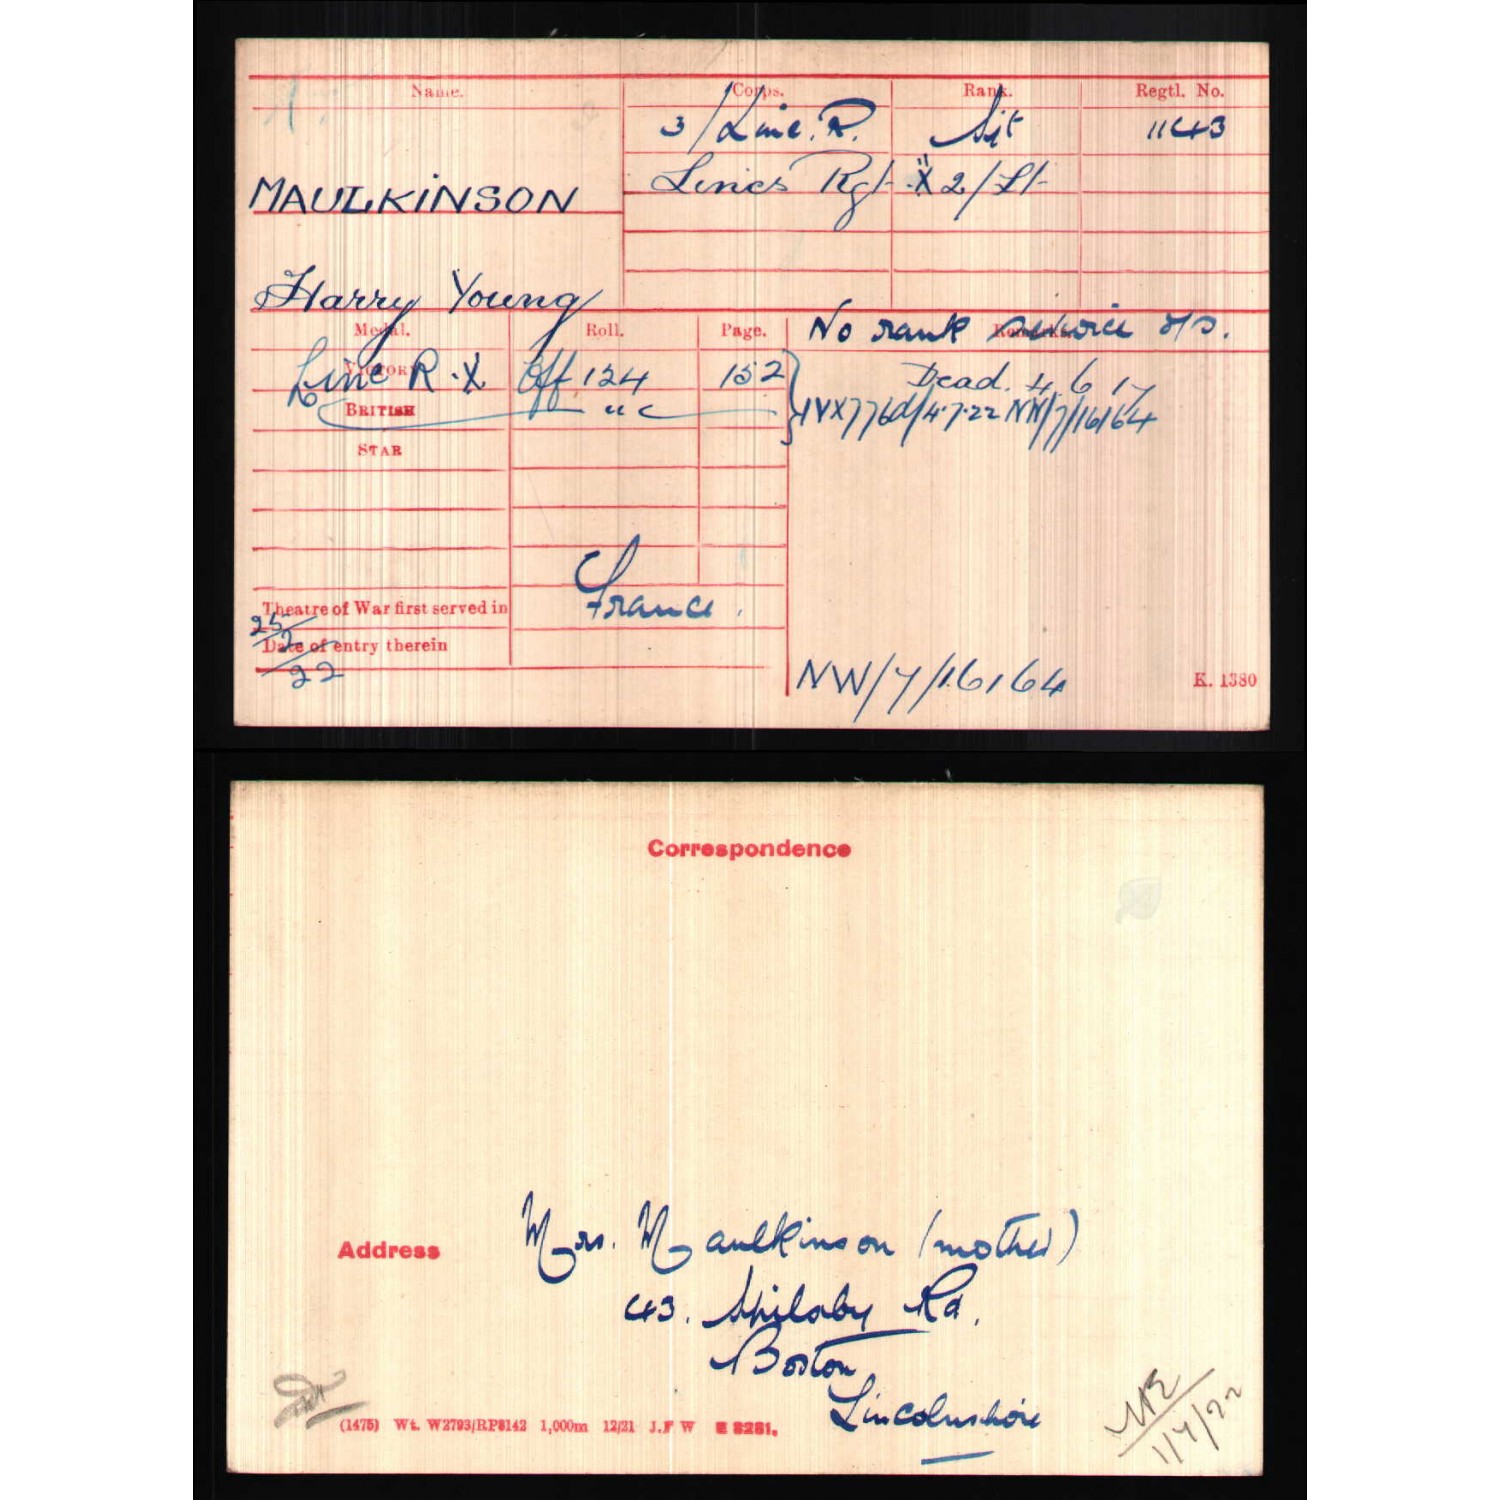 Name. Corps. Rank. Regtl. No.
3/Linc. R. Sjt 1143
MAULKINSON Lincs Rgt X 2/Lt
Harry Young
Medal. Roll. Page. No rank service o/s. Remarks.
VICTORY Linc R X Off 124 152 Dead. 4 6 17
BRITISH IVX/776d/4.7.22 NW/7/16164
STAR
Theatre of War first served in France.
25/2/22
Date of entry therein
NW/7/16164 K. 1380
Correspondence
Address Mrs. Maulkinson (mother)
43. Spilsby Rd.
Boston
Lincolnshire
(1475) Wt. W2793/RP8142 1,000m 12/21 J.F W E 8281.
1/7/22